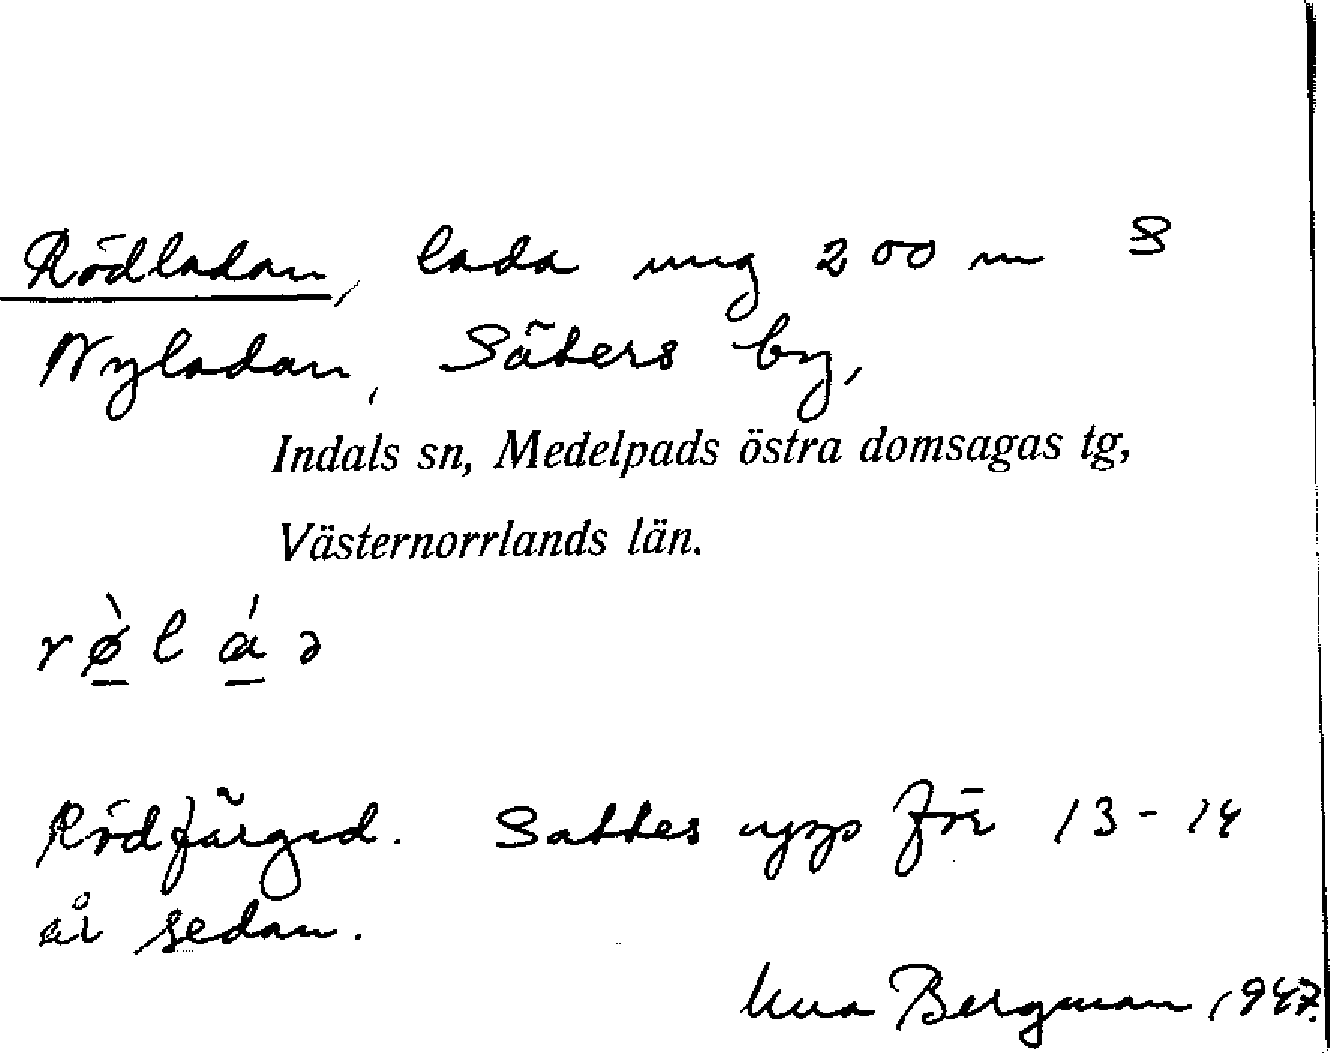 Rödladan, lada ung 200 m S
Nyladan, Säters by,
Indals sn, Medelpads östra domsagas tg,
Västernorrlands län.
rø̀láə
Rödfärgad. Sattes upp för 13-14
år sedan.
Una Bergman 1947.